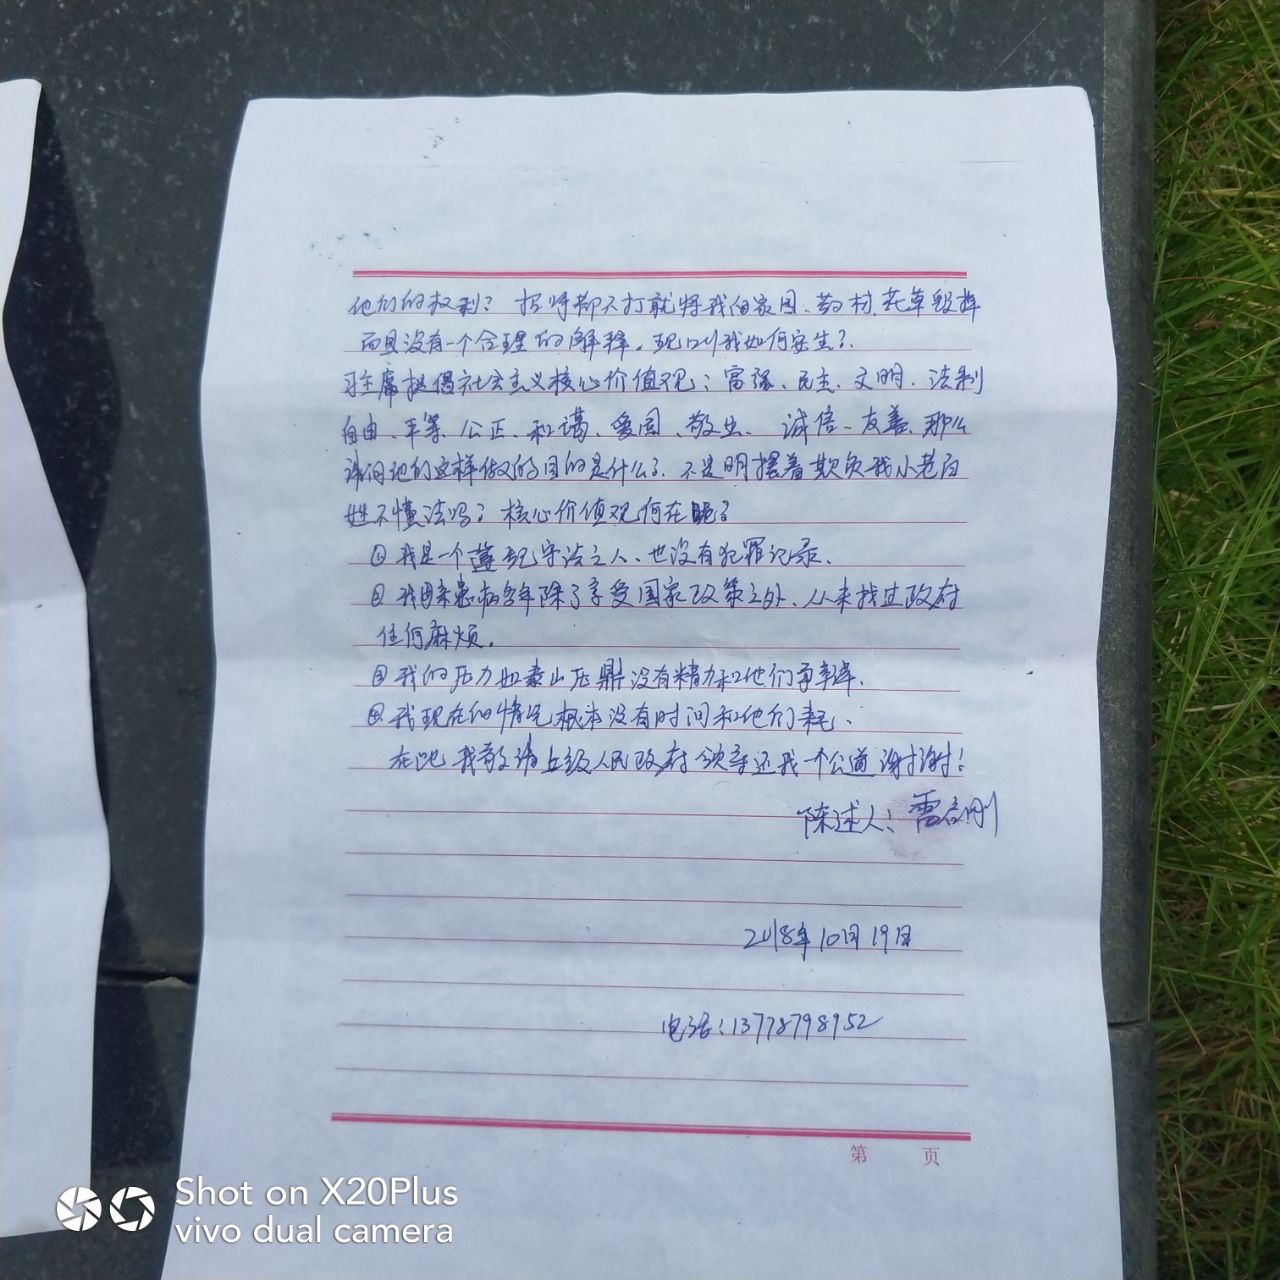 他们的权利？招呼都不打就将我的家园、药材、花草毁掉
而且没有一个合理的解释。现叫我如何安生？
习主席提倡社会主义核心价值观：富强、民主、文明、法制
自由、平等、公正、和谐、爱国、敬业、诚信、友善、那么
请问他们这样做的目的是什么？不是明摆着欺负我小老百
姓不懂法吗？核心价值观何在呢？
①我是一个遵纪守法之人、也没有犯罪记录、
②我母亲患病多年除了享受国家政策之外、从来找过政府
任何麻烦。
③我的压力如泰山压鼎没有精力和他们争辩、
④我现在的情况根本没有时间和他们耗、
在此我敬请上级人民政府领导还我一个公道谢谢！
陈述人：雷刚
2018年10月19日
电话：13778798952
第 页
Shot on X20Plus
vivo dual camera